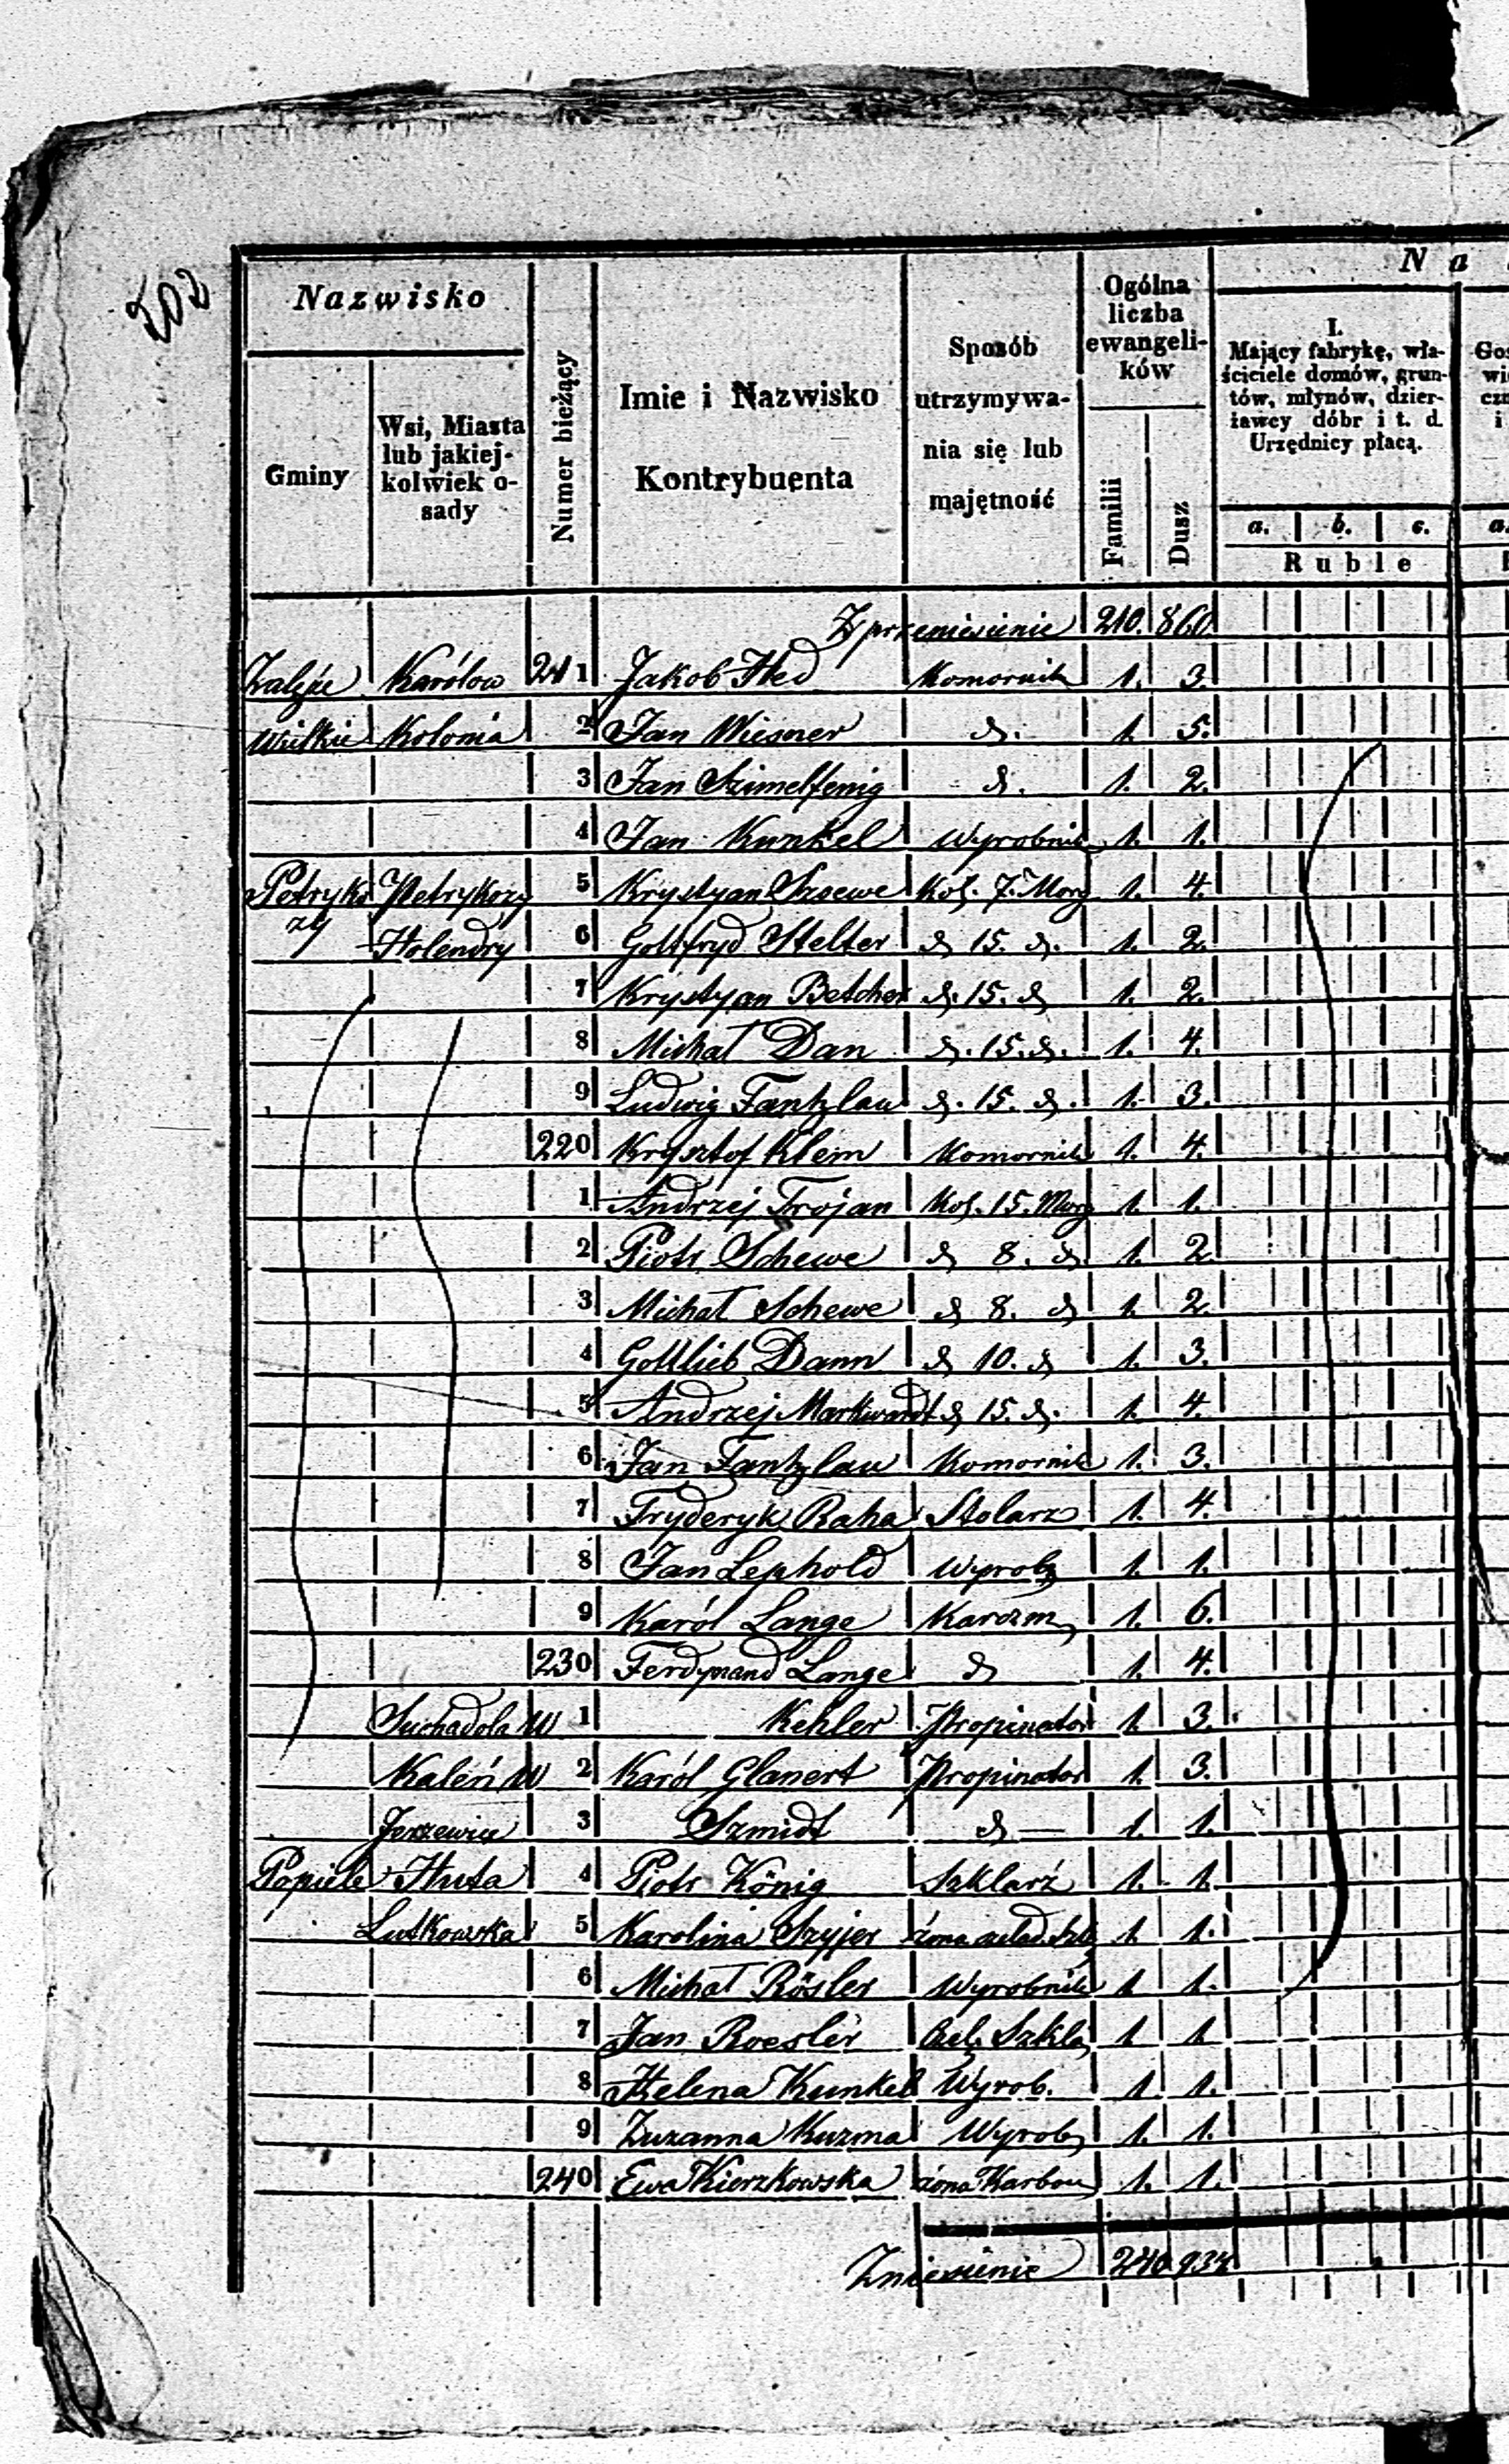 202
Nazwisko
Gminy
Wsi, Miasta lub jakiej-kolwiek o-sady
Numer bieżący
Imie i Nazwisko Kontrybuenta
Sposób utrzymywa-nia się lub majętność
Ogólna liczba ewangeli-ków
Familii
Dusz
N a
I. Mający fabrykę, wła-ściciele domów, grun-tów, młynów, dzier-żawcy dóbr i t. d. Urzędnicy płacą.
a. b. c.
Ruble
Z przeniesienia 210. 860
Zalęże Karólow 211 Jakob Hed Komornik 1. 3.
Wielkie Kolonia 2 Jan Wiesner d. 1. 5.
3 Jan Szimelfenig d. 1. 2.
4 Jan Kunkel Wyrobnik 1. 1.
Petryko Petrykozy 5 Krystyan Szewe Kol. 7. Morg 1. 4.
zy Holendry 6 Gottfryd Stelter d 15. d. 1. 2.
7 Krystyan Betcher d. 15. d 1. 2.
8 Michał Dan d. 15. d. 1. 4.
9 Ludwig Fantzlau d. 15. d. 1. 3.
220 Krysztof Klem Komornik 1. 4.
1 Andrzej Trojan Kol. 15. Morg 1. 1.
2 Piotr Schewe d 8. d. 1. 2.
3 Michał Schewe d 8. d 1. 2.
4 Gottlieb Dann d 10. d 1. 3.
5 Andrzej Markwardt d 15. d. 1. 4.
6 Jan Fantzlau Komornik 1. 3.
7 Fryderyk Raha Stolarz 1. 4.
8 Jan Lephold Wyrob 1. 1.
9 Karól Lange Karczm 1. 6.
230 Ferdynand Lange d 1. 4.
Suchadola W 1 Kehler Propinator 1. 3.
Kaleń W 2 Karól Glanert Propinator 1. 3.
Jerzewice 3 Szmidt d — 1. 1.
Popiele Huta 4 Piotr König Szklarz 1. 1.
Lutkowska 5 Karolina Szyjer żona czelad. Szk 1. 1.
6 Michał Rösler Wyrobnik 1. 1.
7 Jan Roesler Czel. Szkla 1. 1
8 Helena Kunkel Wyrob. 1. 1.
9 Zuzanna Kuzma Wyrob 1. 1.
240 Ewa Kierzkowska żona Karbow 1. 1.
Zniesienie 240 934